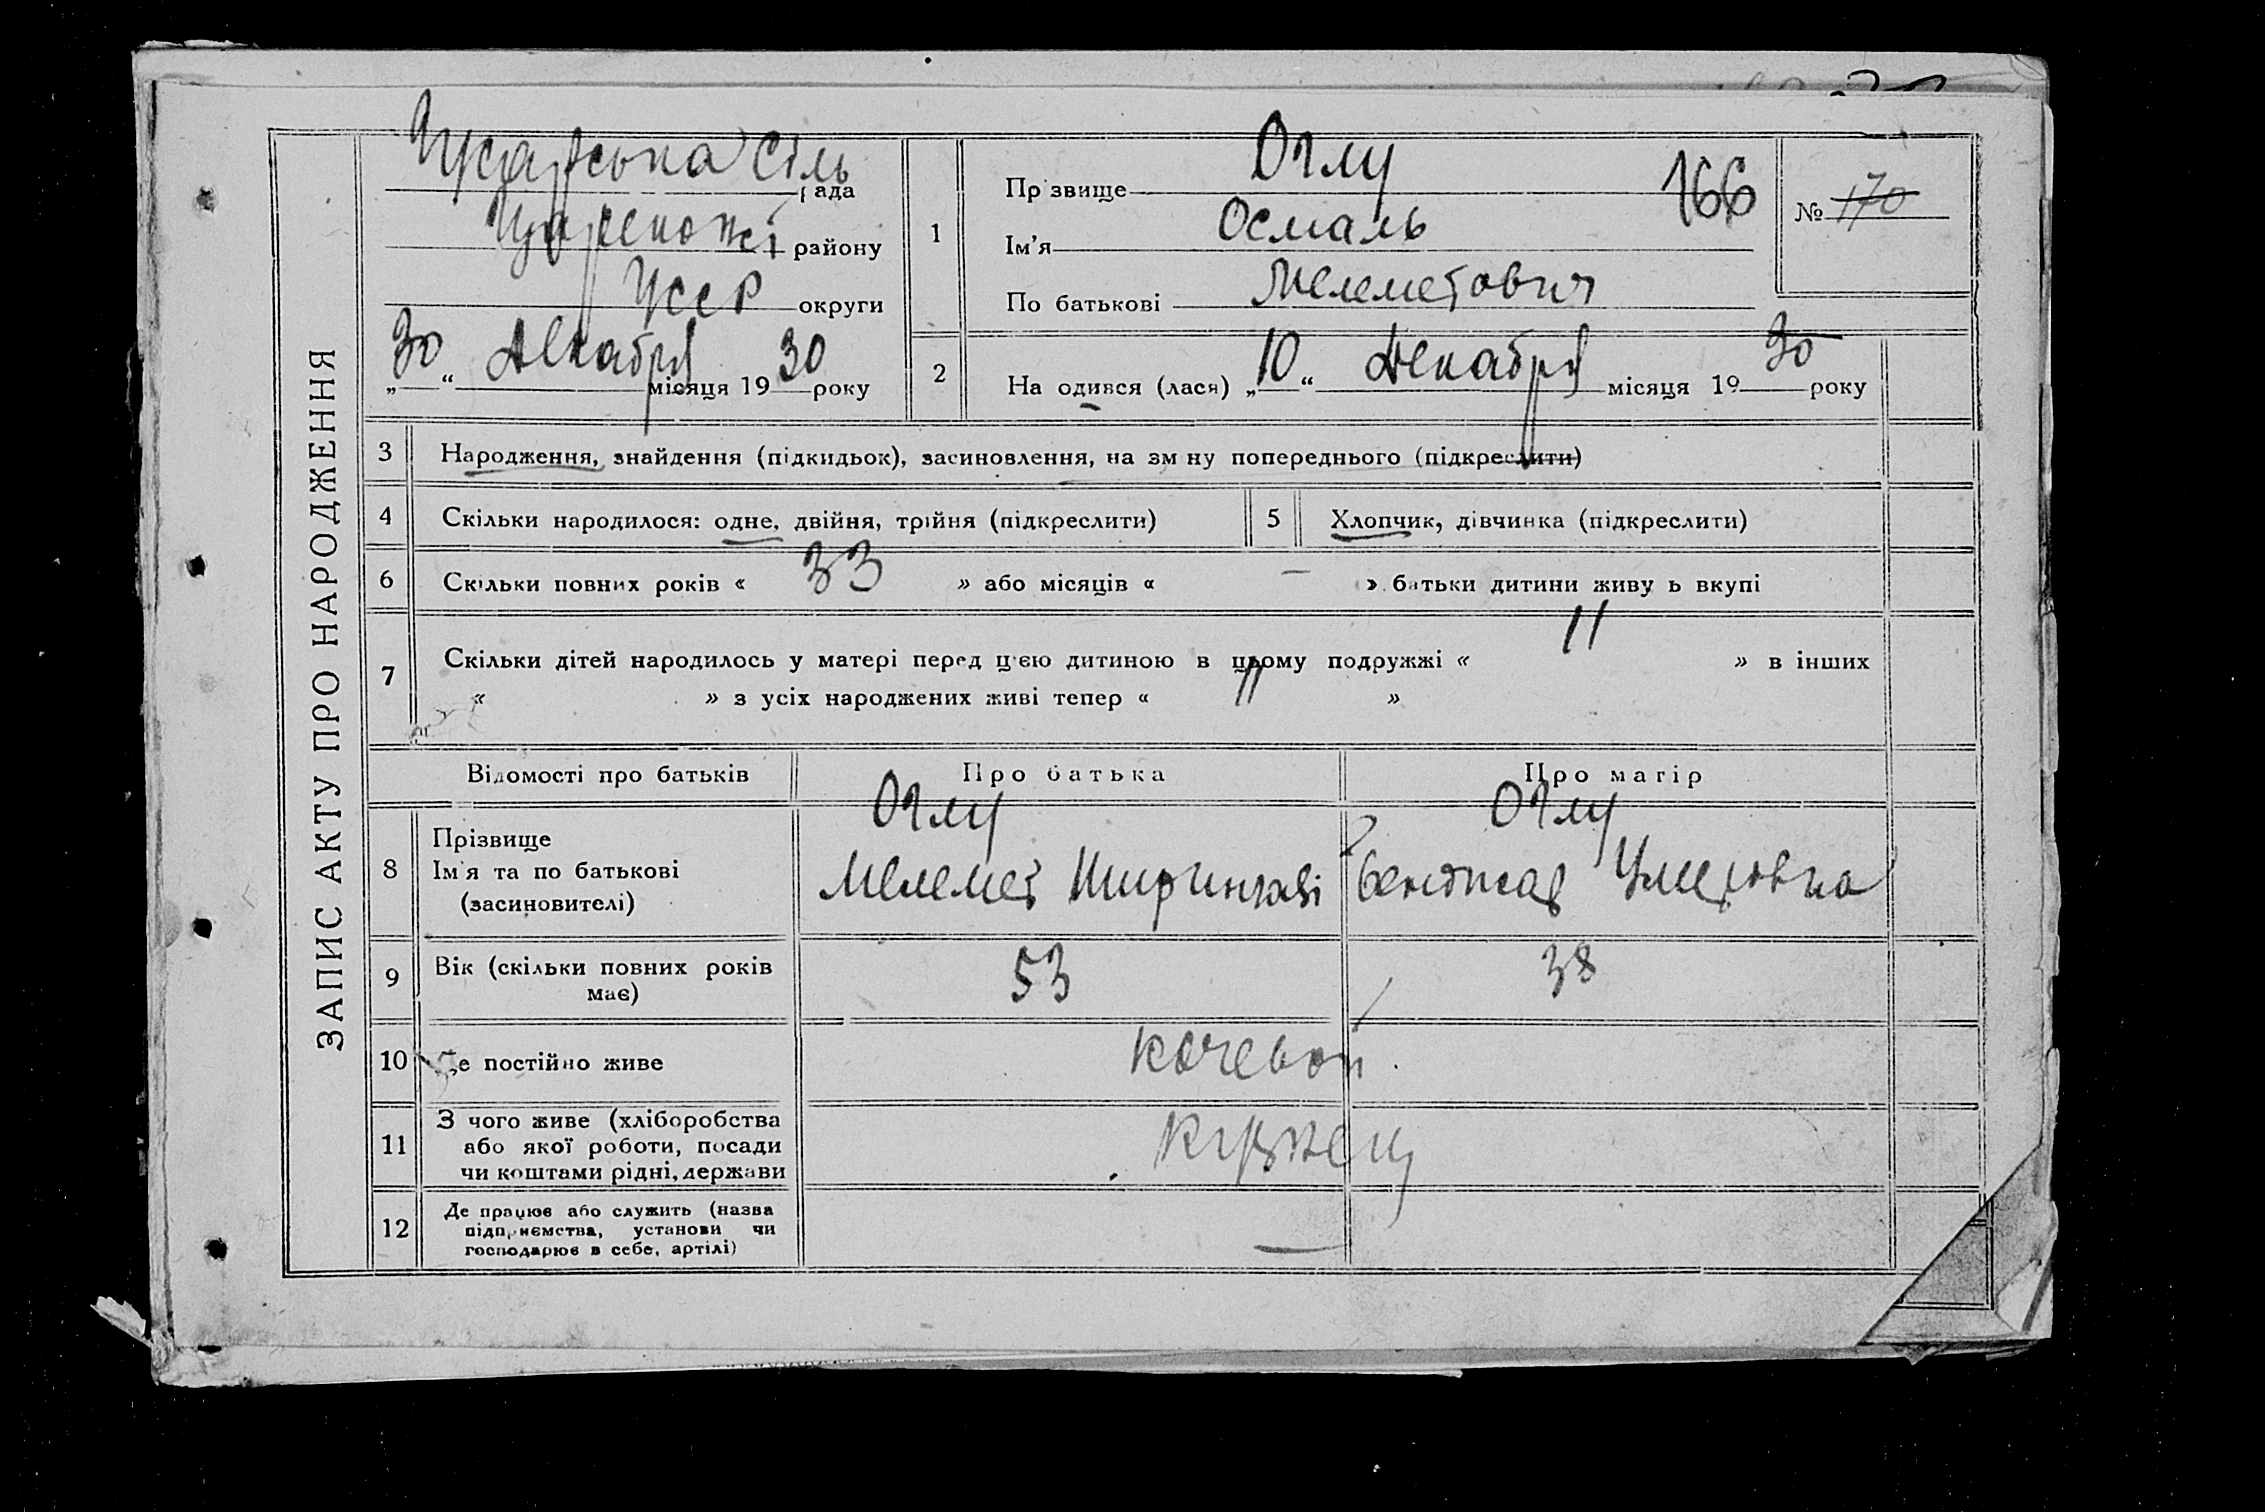 ЗАПИС АКТУ ПРО НАРОДЖЕННЯ
сіль рада
району
УССР округи
„30“ Декабря місяця 1930 року
1
Прізвище Оглу
166
Ім’я Осмаль
По батькові Мелеметович
№ 170
2
На одився (лася) „10“ Декабря місяця 1930 року
3 Народження, знайдення (підкидьок), засиновлення, на зм ну попереднього (підкреслити)
4 Скільки народилося: одне, двійня, трійня (підкреслити)
5 Хлопчик, дівчинка (підкреслити)
6 Скільки повних років « 33 » або місяців « — » батьки дитини живу ь вкупі
7 Скільки дітей народилось у матері перед цією дитиною в цьому подружжі « 11 » в інших
« » з усіх народжених живі тепер « 11 »
Відомості про батьків Про батька Про матір
8 Прізвище
Ім'я та по батькові
(засиновителі)
Оглу
Мелемет
Оглу
Умеровна
9 Вік (скільки повних років
має)
53
38
10 Де постійно живе
Кочевой
11 З чого живе (хліборобства
або якої роботи, посади
чи коштами рідні, держави
12 Де працює або служить (назва
підприємства, установи чи
господарює в себе, артілі)
—